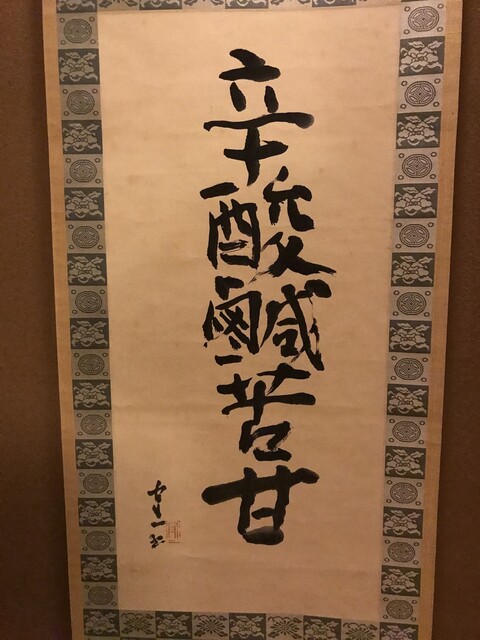 辛酸鹹苦甘